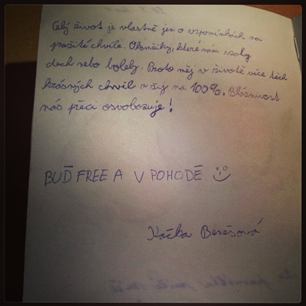 Celý život je vlastně jen o vzpomínkách na
prožité chvíle. Okamžiky, které nás
dech nebo bolely. Proto měj v životě více těch
krásných chvil a žij na 100%. Bláznivost
nás přeci osvobozuje!
BUĎ FREE A V POHODĚ
Kačka Berešová